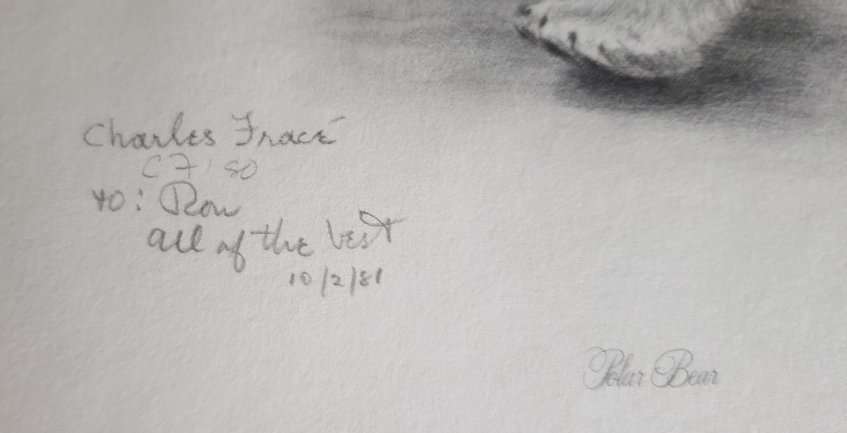 Charles Fracé
CF '80
to: Ron
all of the best
10/2/81
Polar Bear